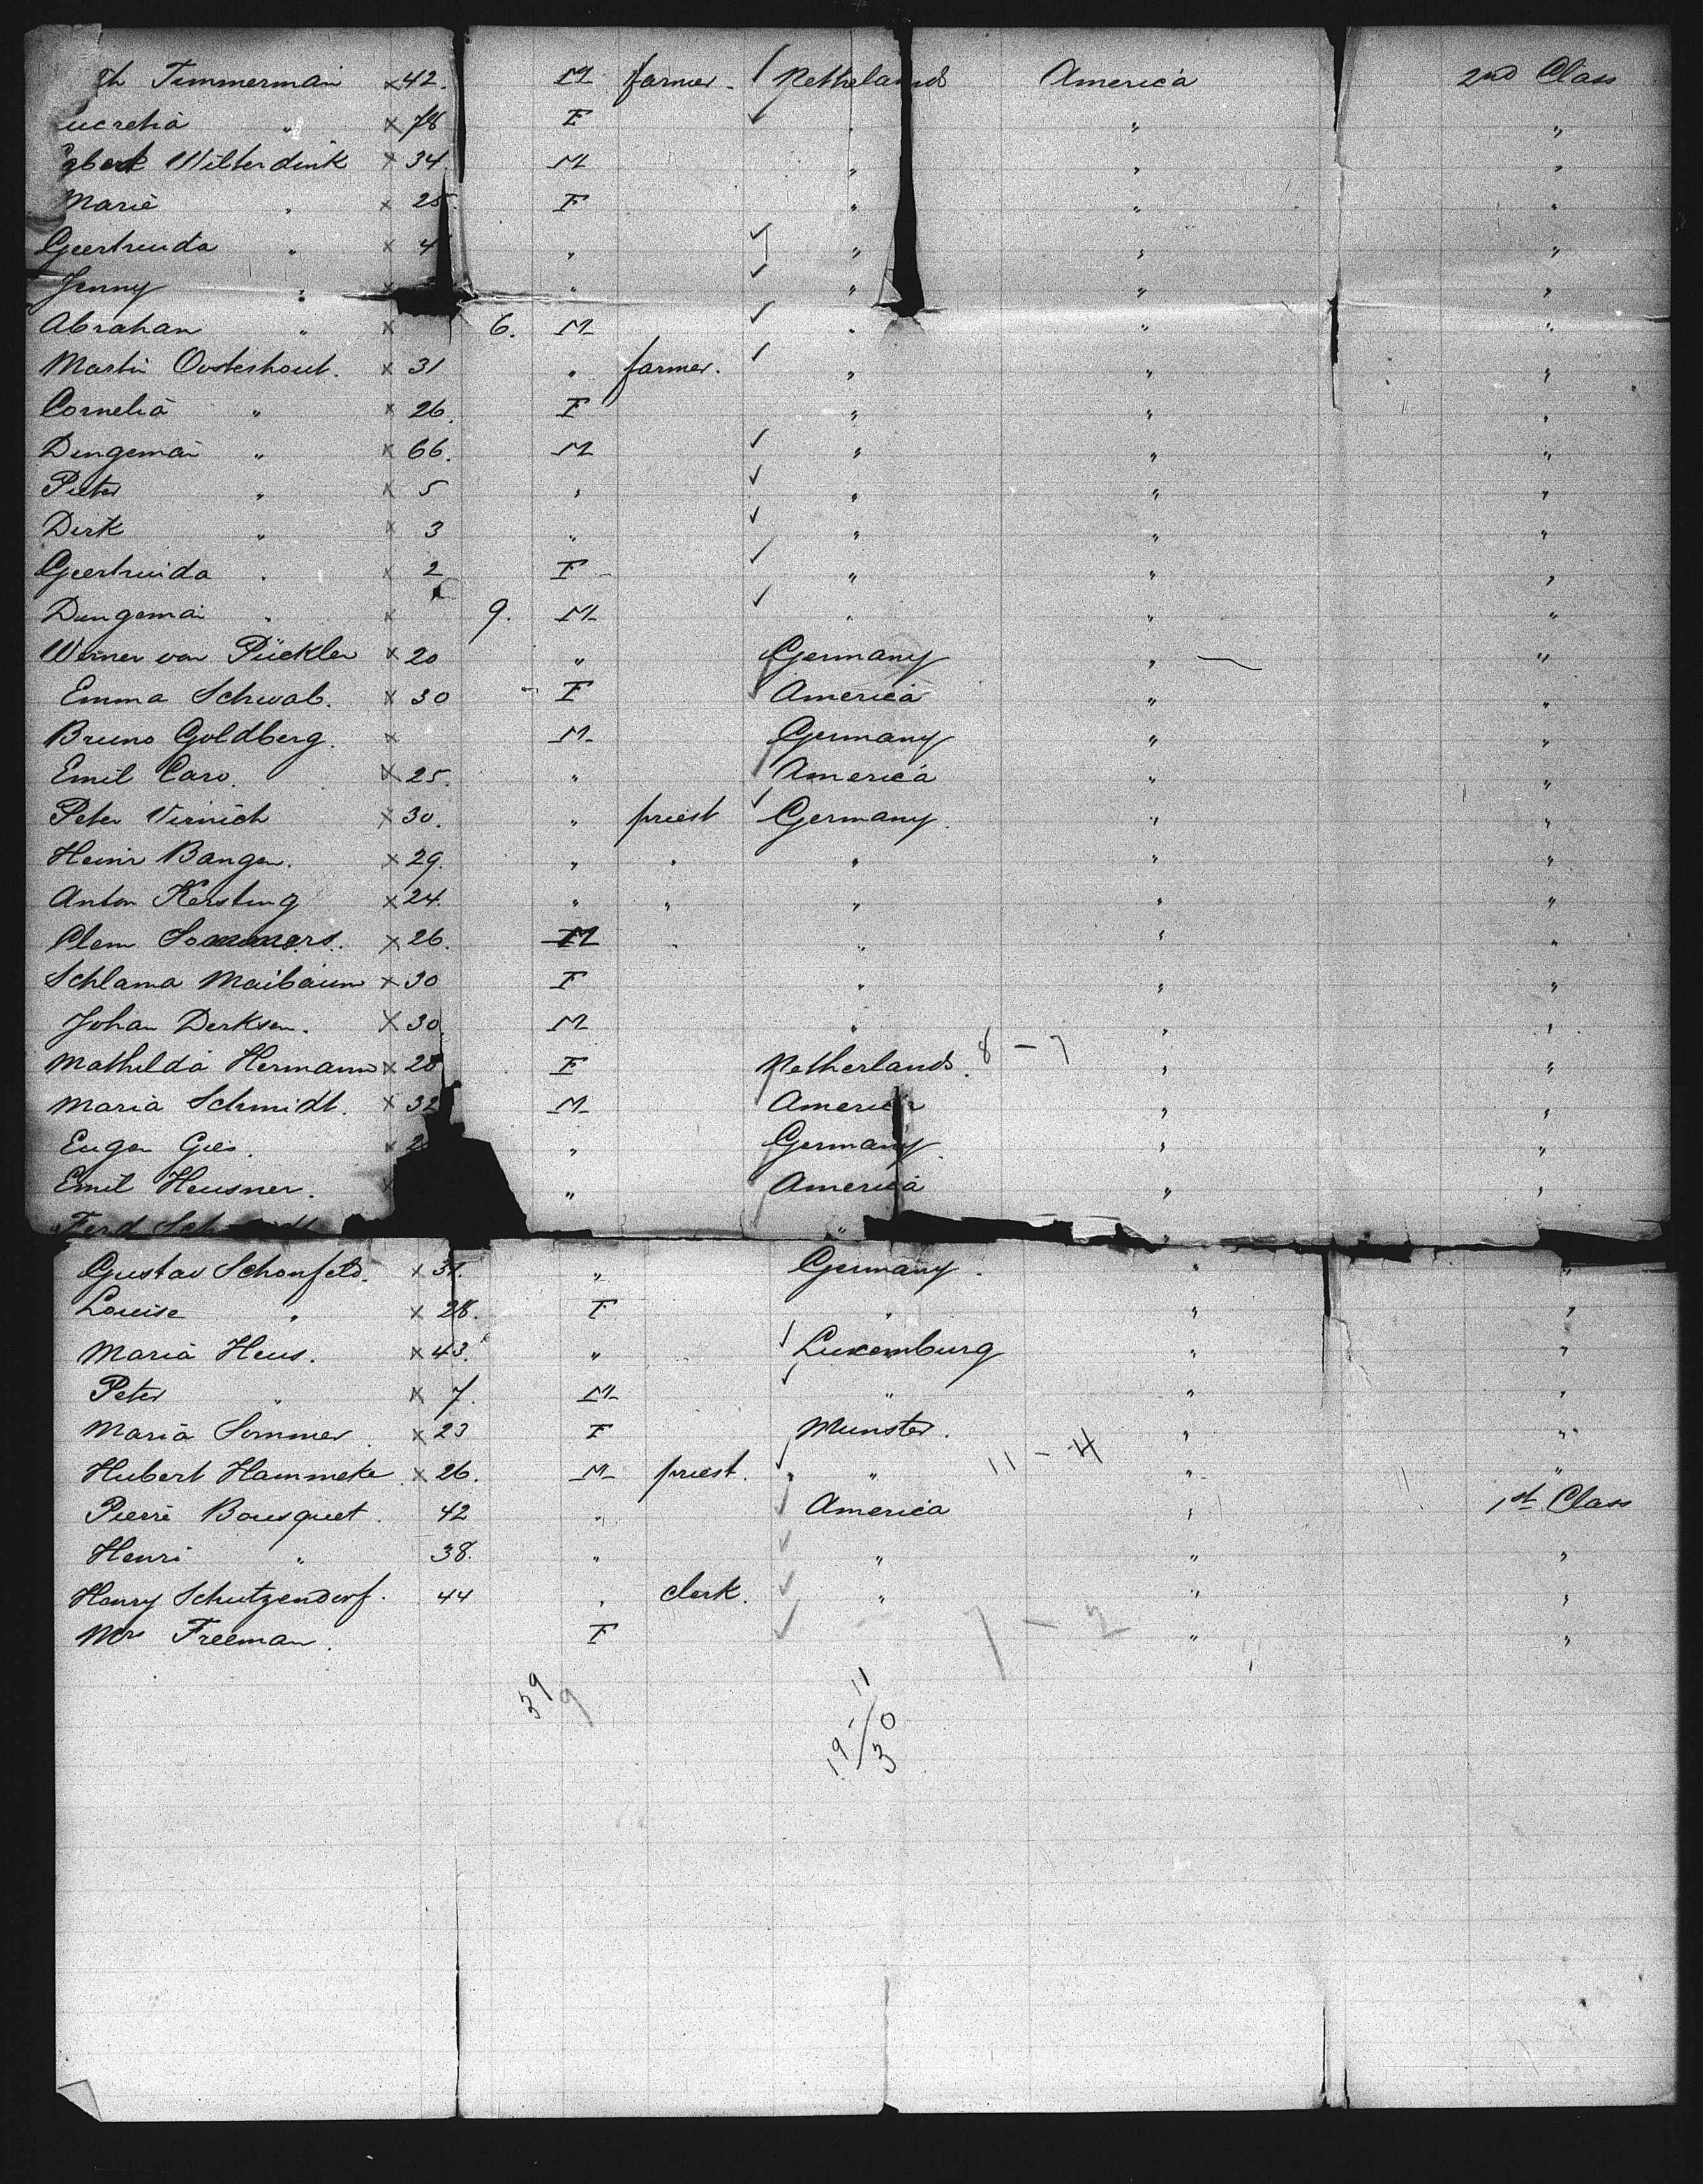 Th Timmerman × 42. M farmer. ✓ Netherlands America 2nd Class
ucretia " × 78 F ✓ " " "
gbert Wilterdink × 34. M " " "
Marie " × 25. F " " "
Geertruida " × 4 " ✓ " " "
Jenny " × " ✓ " " "
Abraham " × 6. M ✓ " " "
Martin Oosterhout. × 31 " farmer. ✓ " " "
Cornelia " × 26. F " " "
Dingeman " × 66. M ✓ " " "
Pieter " × 5 " ✓ " " "
Dirk " × 3 " ✓ " " "
Geertruida " × 2 F ✓ " " "
Dingeman " × 9. M ✓ " " "
Werner von Pückler × 20 " Germany " "
Emma Schwab. × 30 " F America " "
Bruno Goldberg. × M Germany " "
Emil Caro. × 25. " America " "
Peter Virnich × 30. " priest ✓ Germany. " "
Heinr Bangen. × 29. " " " " "
Anton Kersting × 24. " " " " "
Clem Sommers. × 26. M " " " "
Schlama Maibaum × 30 F " " "
Johan Derksen. × 30. M " " "
Mathilda Hermann × 28 F Netherlands. 8 - 7 " "
Maria Schmidt. × 32 M America " "
Eugen Gies. × 2 " Germany. " "
Emil Heusner. × " America " "
Ferd "
Gustav Schonfeld. × 31. " Germany. " "
Louise " × 28. F " " "
Maria Heus. × 43. " ✓ Luxemburg " "
Peter " × 7. M ✓ " " "
Maria Sommer. × 23 F Munster. " "
Hubert Hammeke. × 26. M priest. ✓ " 11 - 4 " "
Pierre Bousquet. 42 " ✓ America " 1st Class
Henri " 38. " ✓ " " "
Henry Schutzendorf. 44 " clerk. ✓ " " "
Mrs Freeman. F ✓ 7 - 2 " "
39 9 11
19 / 30